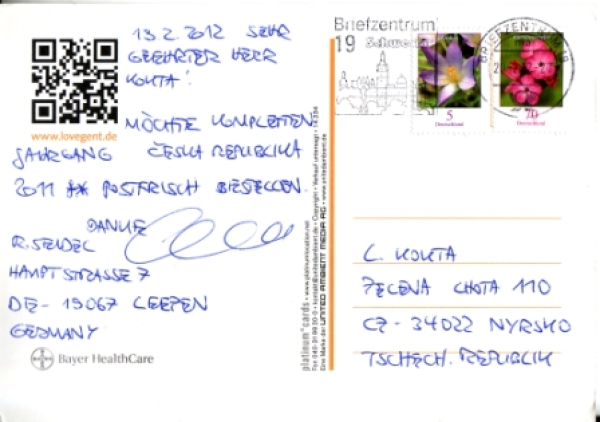 13.2.2012 SEHR
GEEHRTER HERR
KONTA!
www.lovegent.de
MÖCHTE KOMPLETTEN
JAHRGANG ČESKA REPUBLIKA
2011 ** POSTFRISCH BESTELLEN.
DANKE
R. SEIDEL
HAUPTSTRASSE 7
DE-19067 LEEZEN
GERMANY
Bayer HealthCare
platinum cards
Eine Marke der UNITED AMBIENT MEDIA AG
Briefzentrum
19 Schwerin
BRIEFZENTRUM
5
Deutschland
20
Deutschland
L. KONTA
PECENA CHOTA 110
CZ-34022 NYRSKO
TSCHECH. REPUBLIK